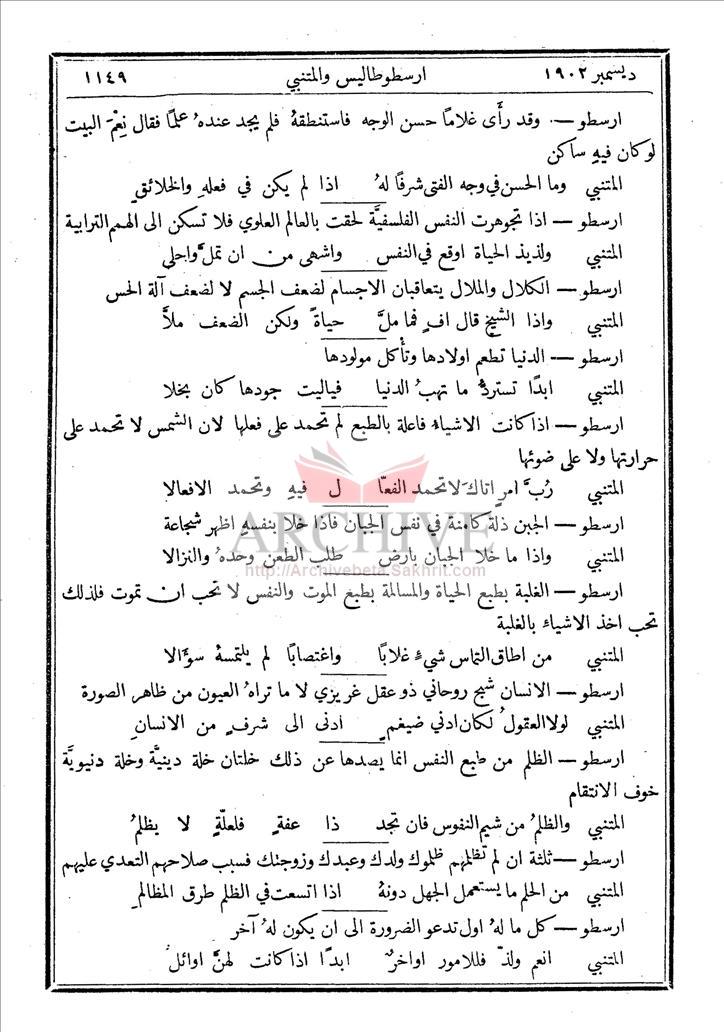 ديسمبر ١٩٠٢ ارسطوطاليس والمتنبي ١١٤٩
ارسطو — . وقد رأَى غلامًا حسن الوجه فاستنطقهُ فلم يجد عندهُ علمًا فقال نِعْمَ البيت
لو كان فيهِ ساكن
المتنبي وما الحسن في وجه الفتى شرفًا لهُ اذا لم يكن في فعلهِ والخلائقِ
ارسطو — اذا تجوهرت النفس الفلسفيَّة لحقت بالعالم العلوي فلا تسكن الى الهمم الترابية
المتنبي ولذيذ الحياة اوقع في النفس واشهى من ان تملَّ واحلى
ارسطو — الكلال والملال يتعاقبان الاجسام لضعف الجسم لا لضعف آلة الحس
المتنبي واذا الشيخ قال افٍ فما ملَّ حياةً ولكن الضعف ملاَّ
ارسطو — الدنيا تطعم اولادها وتأكل مولودها
المتنبي ابدًا تستردُّ ما تهبُ الدنيا فياليت جودها كان بخلا
ارسطو — اذا كانت الاشياءُ فاعلة بالطبع لم تحمد على فعلها لان الشمس لا تحمد على
حرارتها ولا على ضوئها
المتنبي رُبَّ امرٍ اتاكَ لا تحمد الفعَّا ل فيهِ وتحمد الافعالا
ارسطو — الجبن ذلة كامنة في نفس الجبان فاذا خلا بنفسهِ اظهر شجاعة
المتنبي واذا ما خلا الجبان بارضٍ طلب الطعن وحدهُ والنزالا
ARCHIVE
http://Archivebeta.Sakhrit.com
ارسطو — الغلبة بطبع الحياة والمسالمة بطبع الموت والنفس لا تحب ان تموت فلذلك
تحب اخذ الاشياء بالغلبة
المتنبي من اطاق التماس شيءٍ غلابًا واغتصابًا لم يلتمسهُ سؤَالا
ارسطو — الانسان شبح روحاني ذو عقل غريزي لا ما تراهُ العيون من ظاهر الصورة
المتنبي لولا العقولُ لكان ادني ضيغمٍ ادنى الى شرفٍ من الانسانِ
ارسطو — الظلم من طبع النفس انما يصدها عن ذلك خلتان خلة دينيَّة وخلة دنيويَّة
خوف الانتقام
المتنبي والظلمُ من شيم النفوس فان تجد ذا عفةٍ فلعلّةٍ لا يظلمُ
ارسطو — ثلثة ان لم تظلمهم ظلموك ولدك وعبدك وزوجتك فسبب صلاحهم التعدي عليهم
المتنبي من الحلم ما يستعمل الجهل دونهُ اذا اتسعت في الظلم طرق المظالمِ
ارسطو — كل ما لهُ اول تدعو الضرورة الى ان يكون لهُ آخر
المتنبي انعم ولذّ فللامور اواخرٌ ابدًا اذا كانت لهنَّ اوائلُ